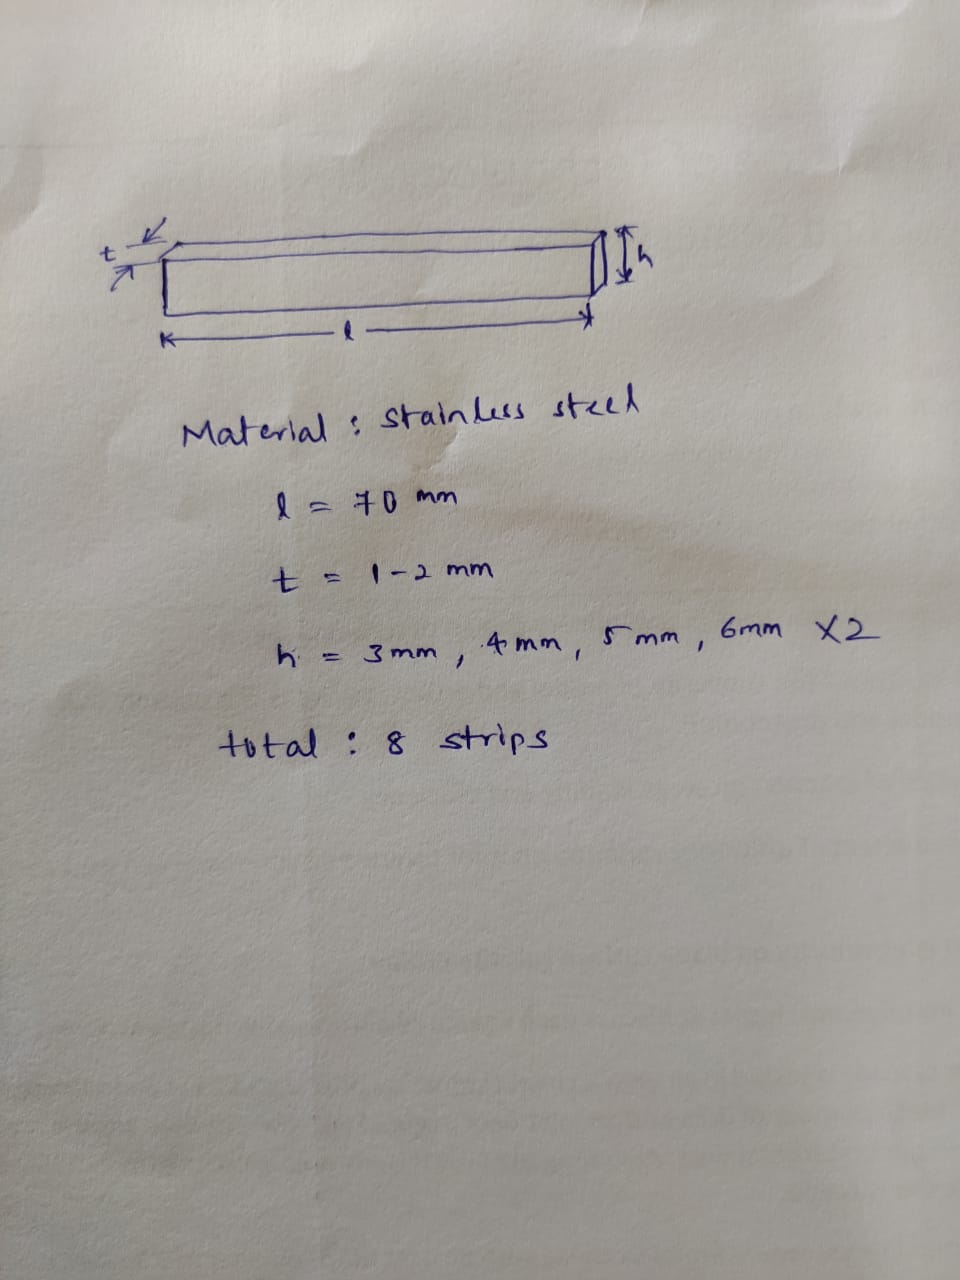 t
h
l
Material : Stainless steel
l = 70 mm
t = 1-2 mm
h = 3mm, 4mm, 5mm, 6mm X2
total : 8 strips